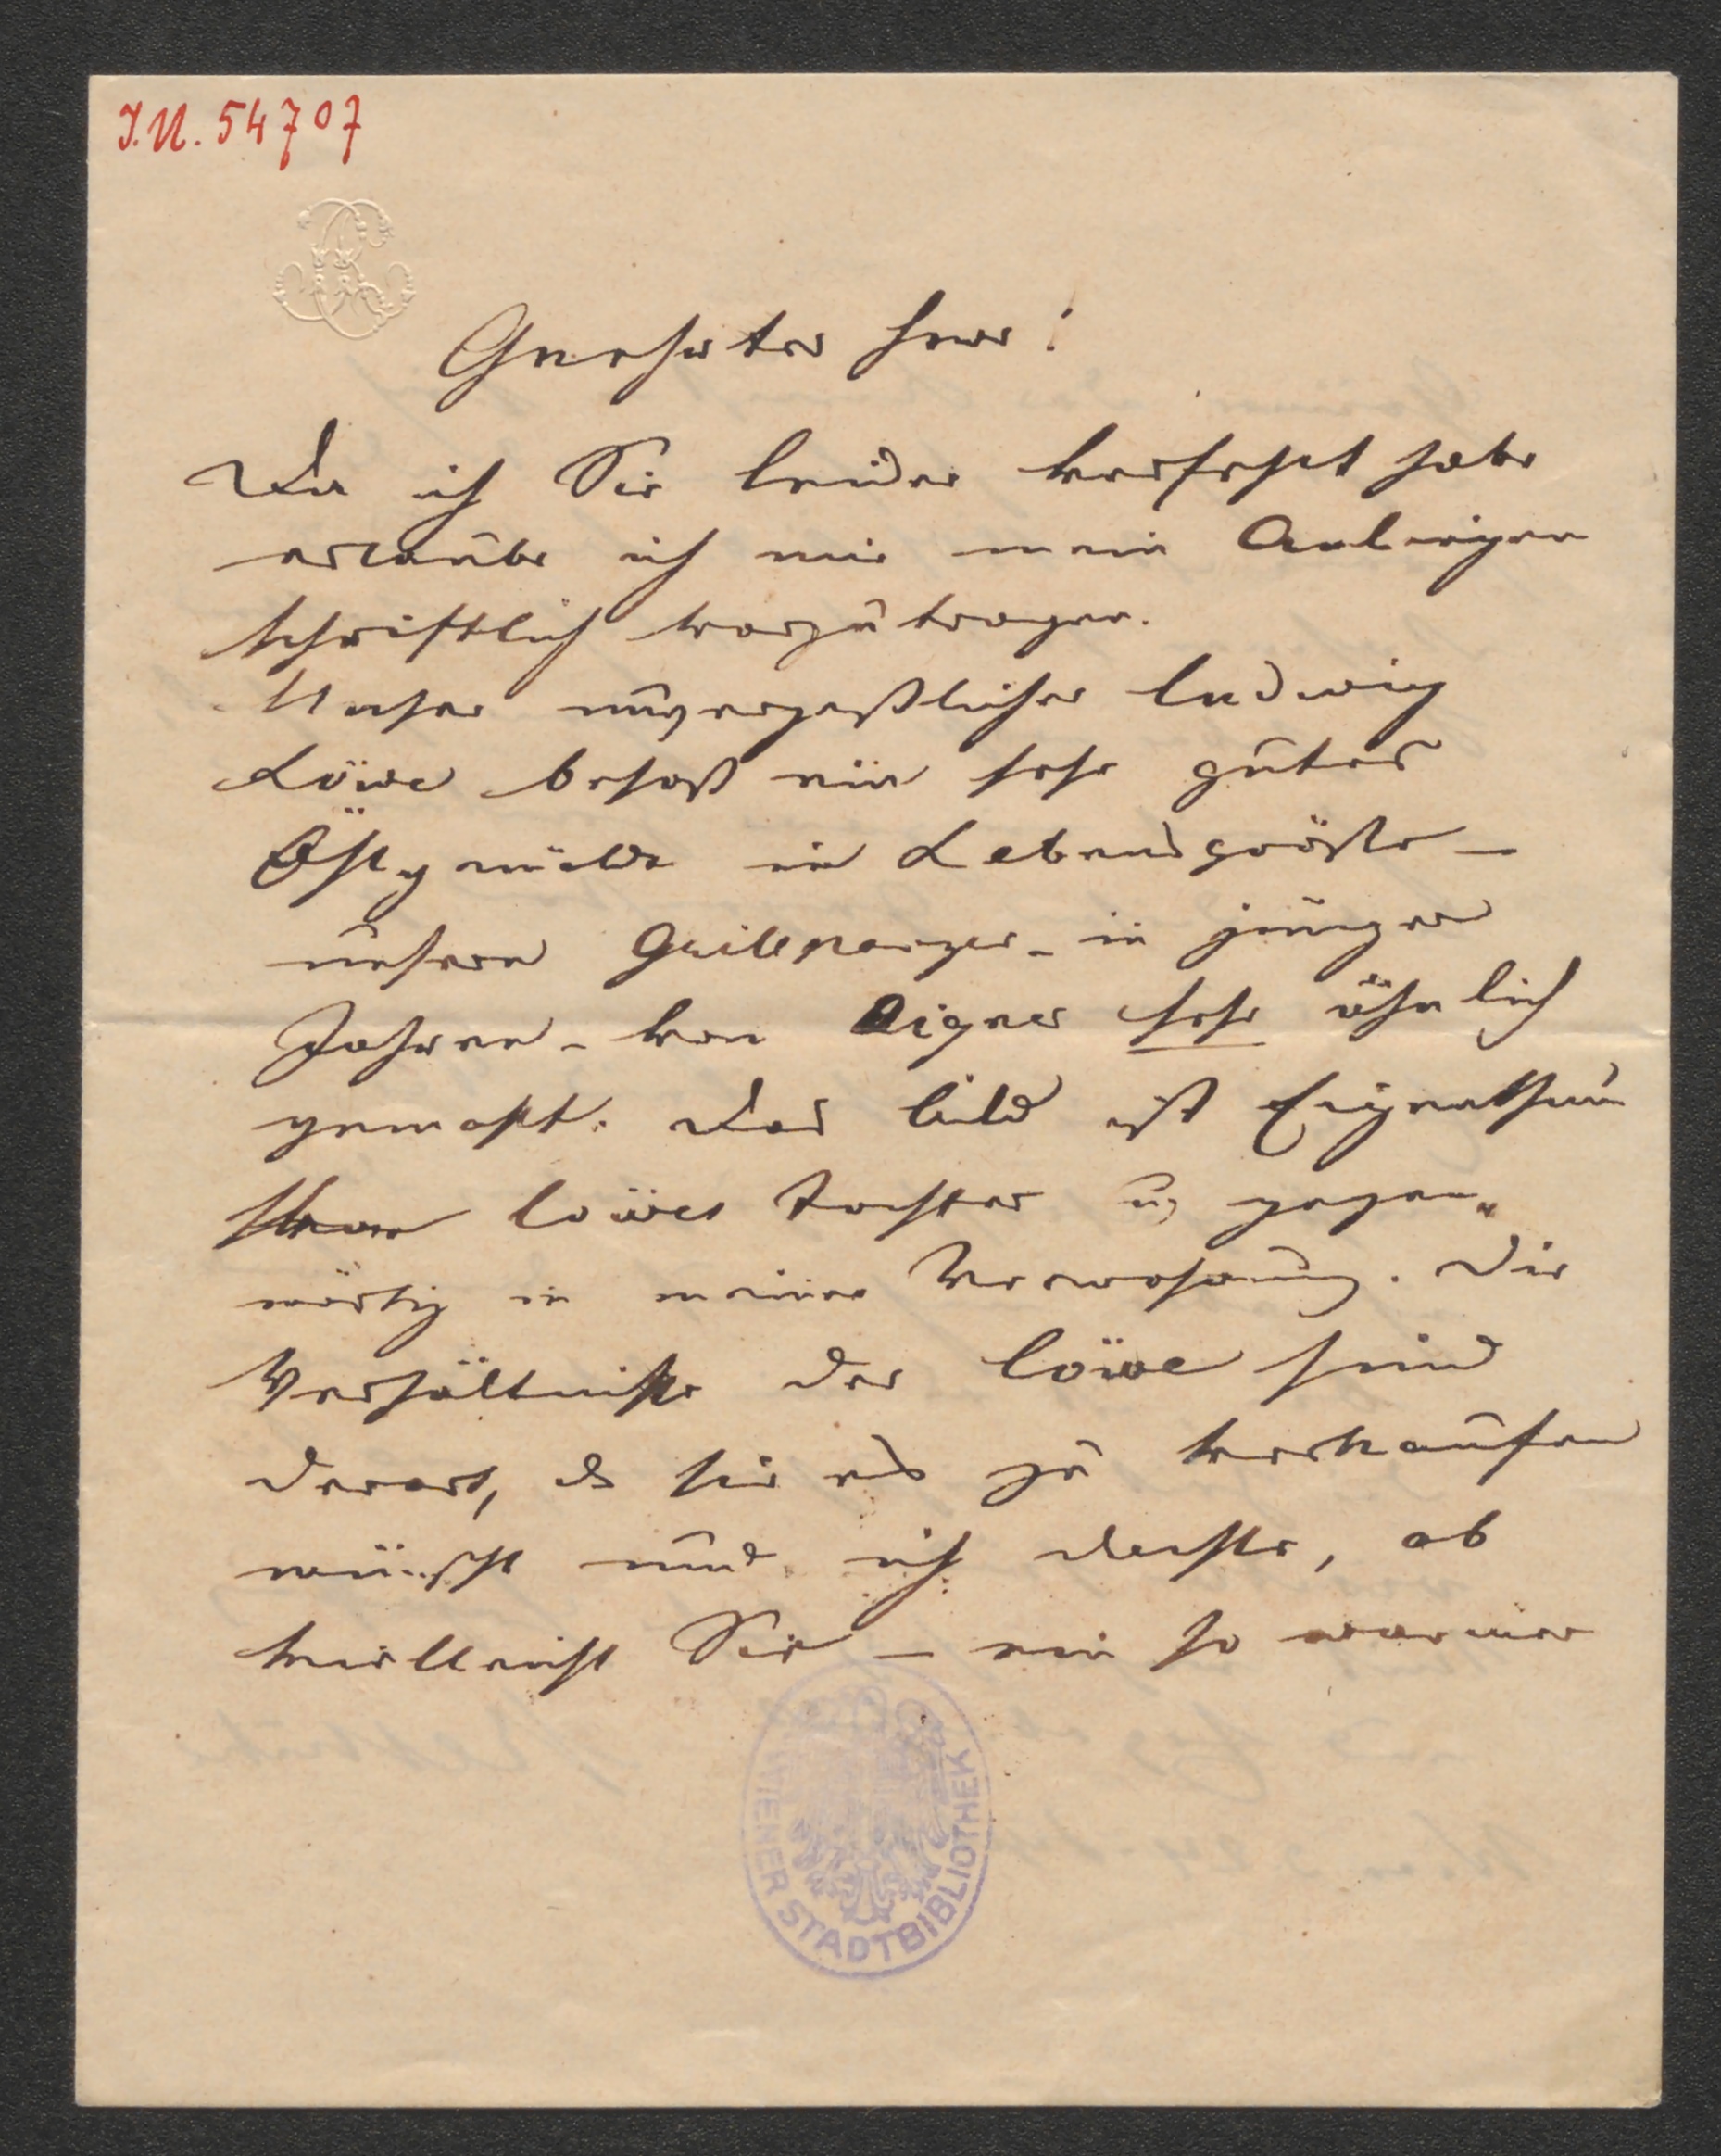 I.N. 54707
Geehrter Herr!
Da ich Sie leider verfehlt habe
erlaube ich mir mein Anliegen
schriftlich vorzutragen.
Unser unvergeßlicher Ludwig
Löwe besaß ein sehr gutes
Öhlgemälde in Lebensgröße –
unsern Grillparzer – in jungen
Jahren – von Aigner sehr ähnlich
gemahlt. Das Bild ist Eigenthum
Löwes Tochter u gegen„
wärtig in meiner Verwahrung. Die
Verhältniße der Löwe sind
derart, ds sie es zu verkaufen
wünscht und ich dachte, ob
vielleicht Sie – ein so warmer
WIENER STADTBIBLIOTHEK